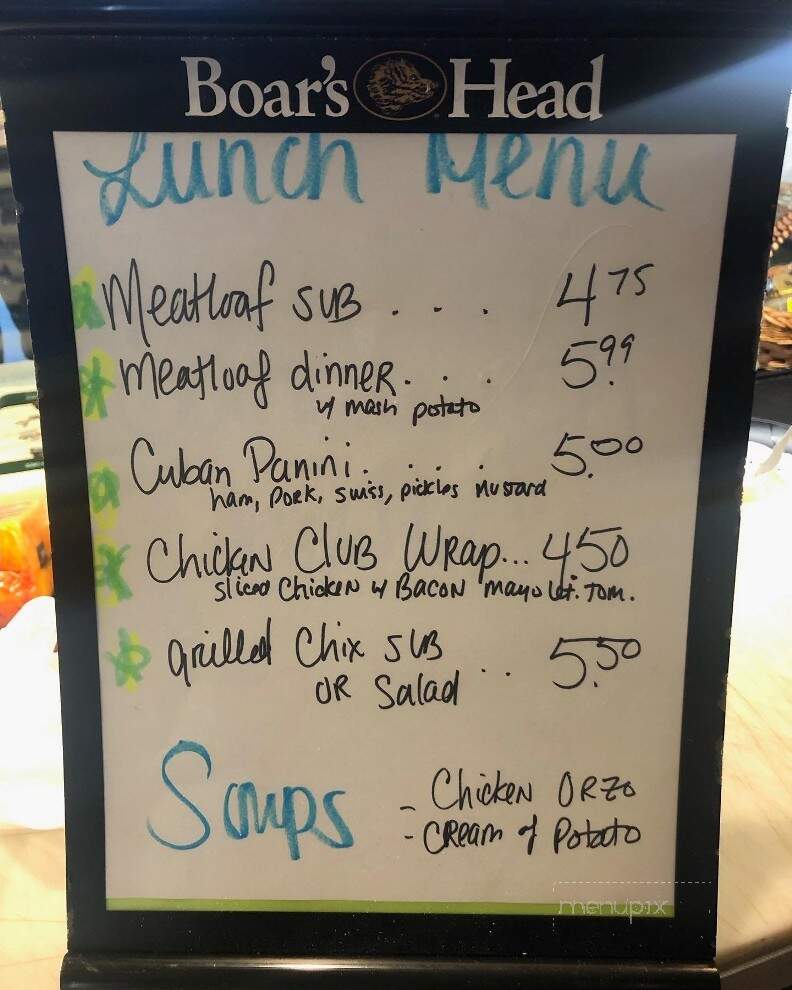 Boar's Head
Lunch Menu
Meatloaf SUB . . . 4 75
Meatloaf dinner . . . 5.99
w/ mash potato
Cuban Panini . . . . 5.00
ham, Pork, swiss, pickles Mustard
Chicken Club Wrap... 4 50
sliced Chicken w/ Bacon mayo let. Tom.
grilled Chix SUB
OR Salad .. 5.50
Soups - Chicken ORZO
- CReam of Potato
menupix